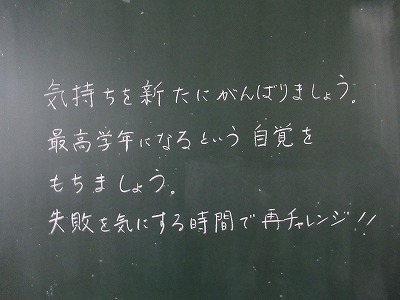 気持ちを新たにがんばりましょう。
最高学年になるという自覚を
もちましょう。
失敗を気にする時間で再チャレンジ!!